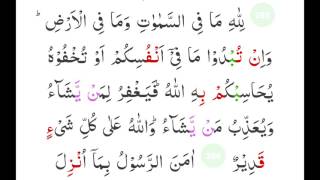 لِلّٰهِ مَا فِی السَّمٰوٰتِ وَمَا فِی الْاَرْضِ ؕ
وَاِنْ تُبْدُوْا مَا فِیْۤ اَنْفُسِكُمْ اَوْ تُخْفُوْهُ
یُحَاسِبْكُمْ بِهِ اللّٰهُ ؕ فَیَغْفِرُ لِمَنْ یَّشَآءُ
وَیُعَذِّبُ مَنْ یَّشَآءُ ؕ وَاللّٰهُ عَلٰی كُلِّ شَیْءٍ
قَدِیْرٌ اٰمَنَ الرَّسُوْلُ بِمَاۤ اُنْزِلَ